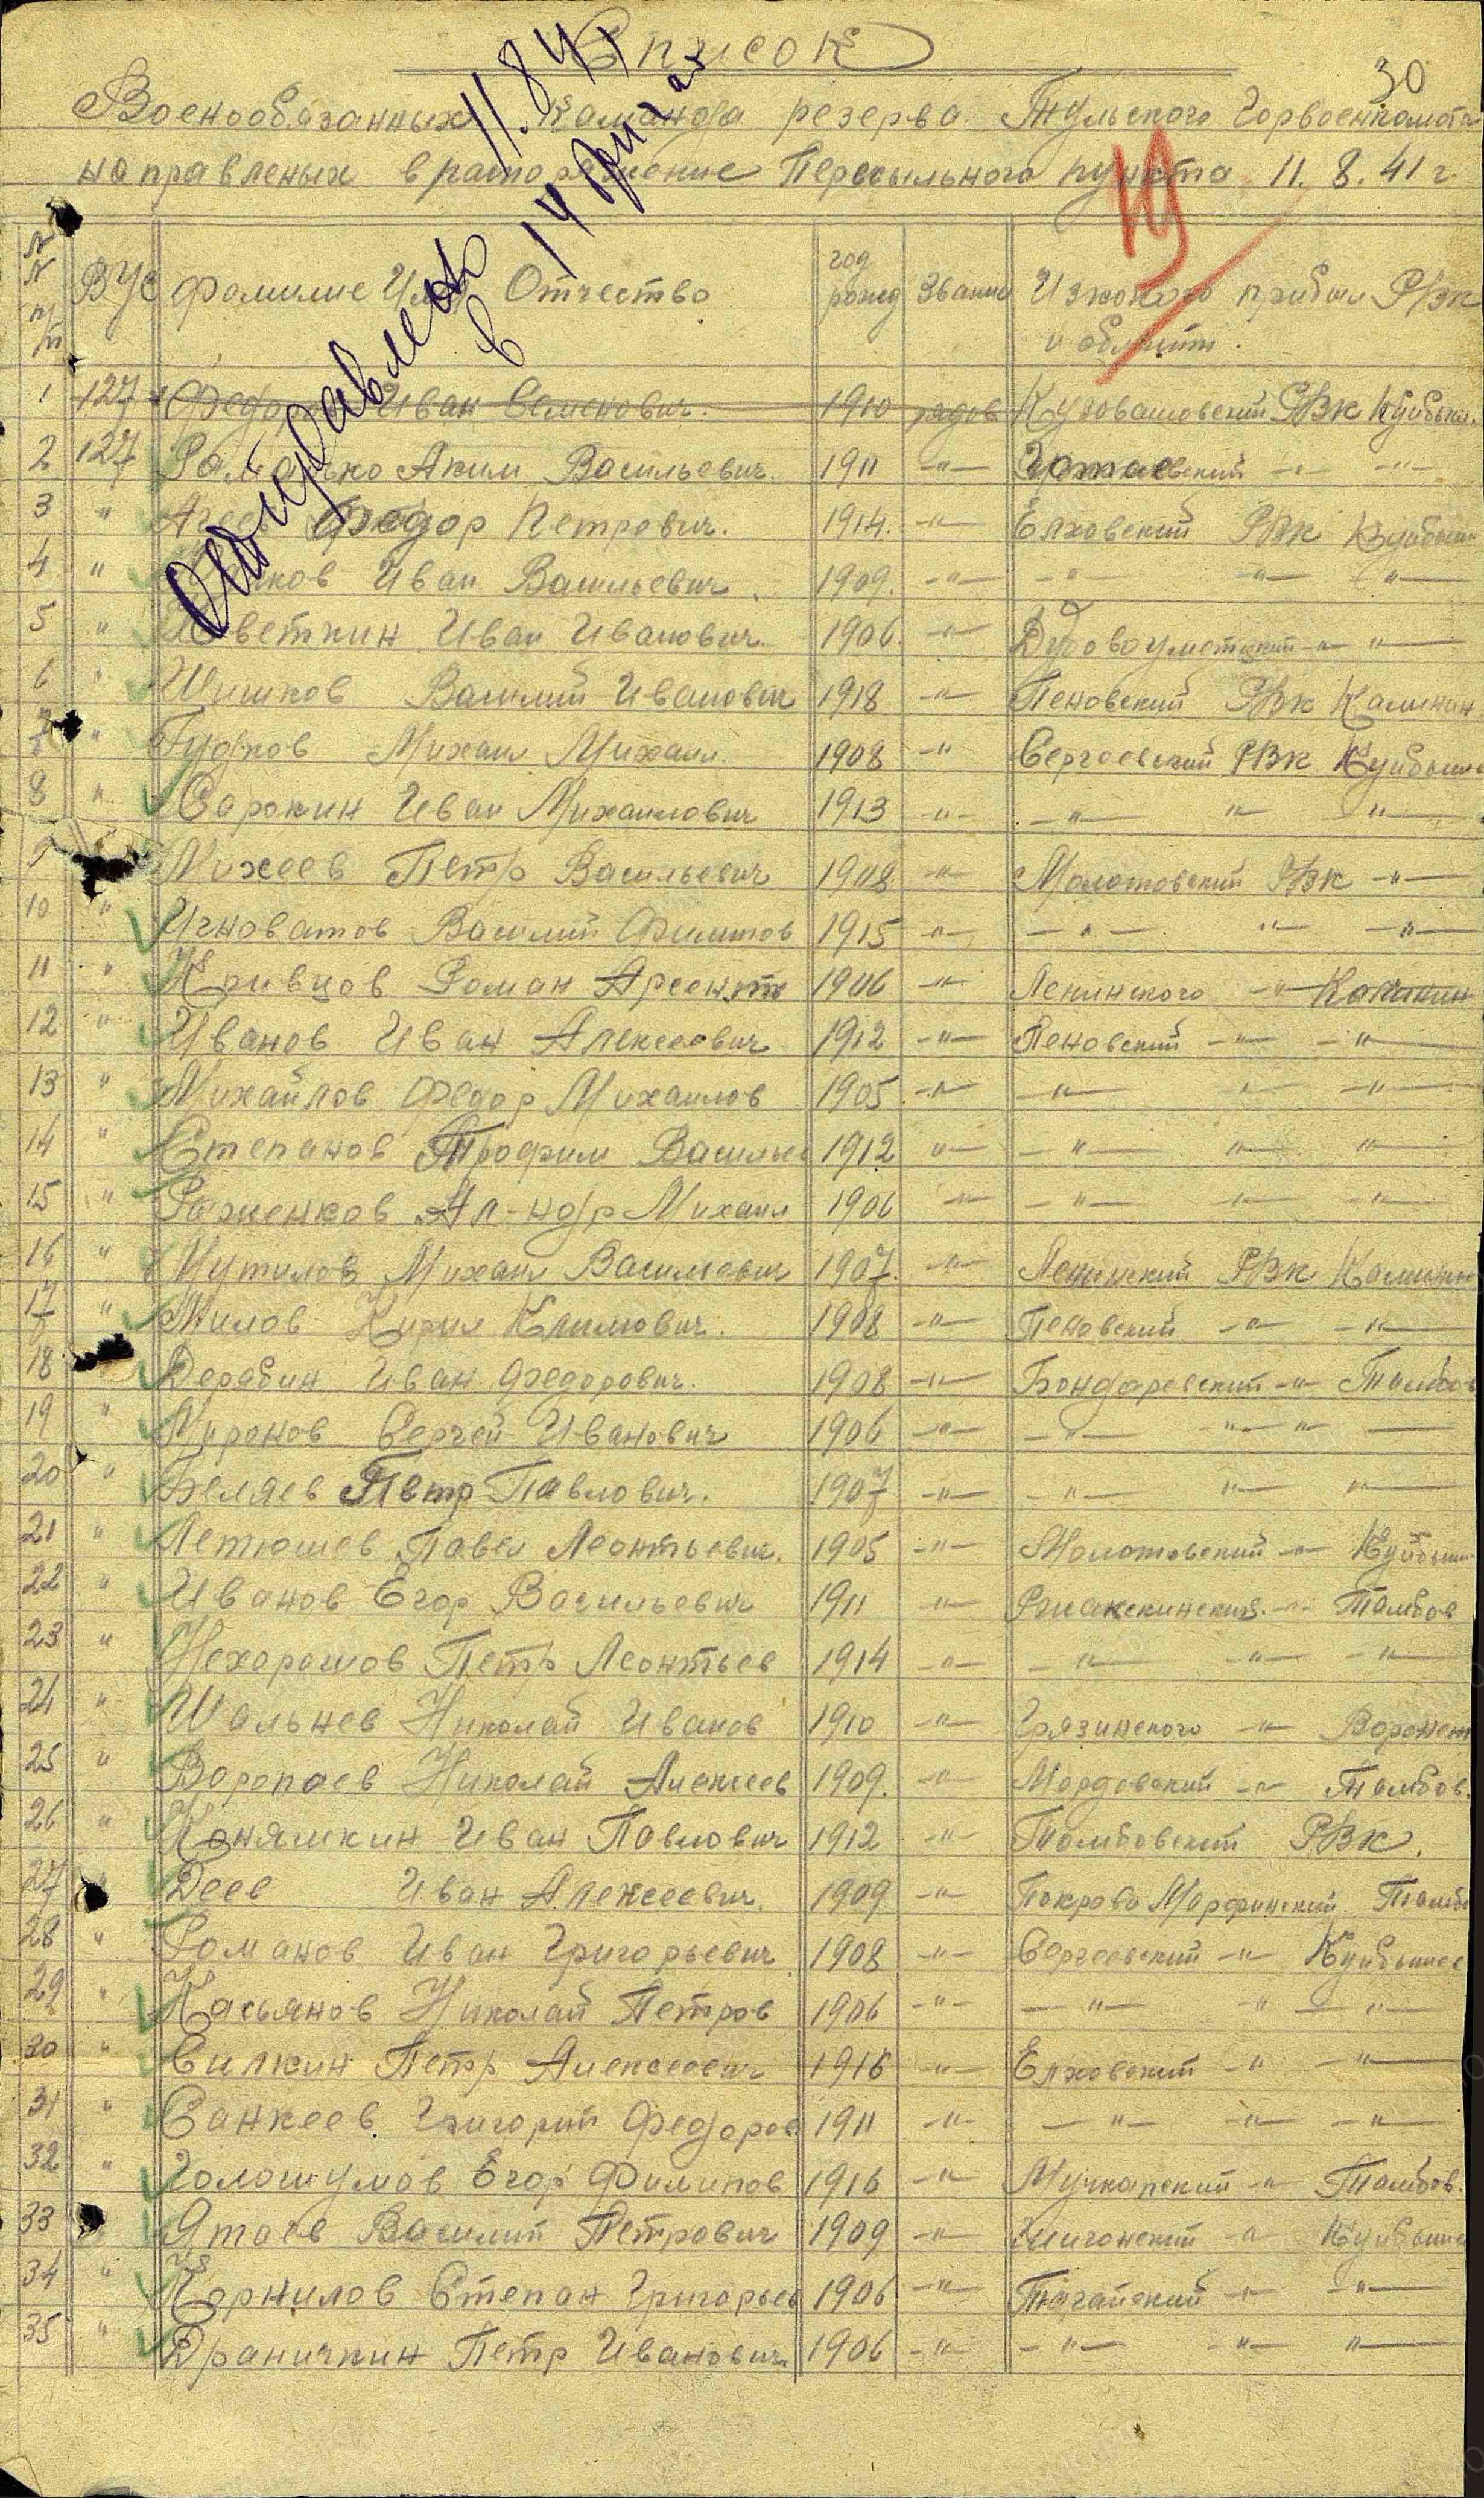 Список
30
Военообязанных команда резерва Тульского Горвоенкомата
направленых в распоряжение Пересыльного пункта 11. 8. 41 г.
Отправлено 11.8.41
в 14
№ № п/п ВУС Фамилие Имя Отчество год рожд Звание Из какого прибыл РВК и области.
1 127 Федоров Иван Семенович. 1910 рядов РВК Куйбыш.
2 127 Романько Аким Васильевич. 1911 -"- -"- -"-
3 " Агеев Федор Петрович. 1914. -"- Елховский РВК Куйбыш
4 " Иван Васильевич. 1909. -"- -"- -"- -"-
5 " Цветкин Иван Иванович. 1906. -"- Дубовоуметский -"- -"-
6 " Шишков Василий Иванович 1918 -"- Пеновский РВК Калинин
7 " Гудков Михаил Михаил. 1908 -"- Сергеевский РВК Куйбыше
8 " Сорокин Иван Михаилович 1913 -"- -"- -"- -"-
9 Михеев Петр Васильевич 1908 -"- Молотовский РВК -"-
10 " Игноватов Василий Филипов 1915 -"- -"- -"- -"-
11 " Кривцов Роман Арсент 1906 -"- Ленинского -"- Калинин
12 " Иванов Иван Алексеевич 1912 -"- Пеновский -"- -"-
13 " Михайлов Федор Михаилов 1905 -"- -"- -"- -"-
14 " Степанов Трофим Васильев 1912 -"- -"- -"- -"-
15 " Роженков Ал-ндр Михаил 1906 -"- -"- -"- -"-
16 " Мутилов Михаил Васильевич 1907. -"- Ленинский РВК Калинин
17 " Милов Кирил Климович. 1908 -"- Пеновский -"- -"-
18 Дерябин Иван Федорович. 1908 -"- Бондаревский -"- Тамбов
19 " Миронов Сергей Иванович 1906 -"- -"- -"- " -
20 " Беляев Петр Павлович. 1907 -"- -"- -"- -"-
21 " Летюшев Павел Леонтьевич. 1905 -"- Молотовский -"- Куйбыш
22 " Иванов Егор Васильевич 1911 -"- Ржаксинский. -"- Тамбов
23 " Нехорошов Петр Леонтьев 1914 -"- -"- -"- -"-
24 " Шальнев Николай Иванов 1910 -"- Грязинского -"- Воронеж
25 " Воропаев Николай Алексеев 1909. -"- Мордовский -"- Тамбов.
26 " Коняшкин Иван Павлович 1912 -"- Тамбовский РВК.
27 " Деев Иван Алексеевич. 1909 -"- Покрово Марфинский Тамбо
28 " Романов Иван Григорьевич 1908 -"- Сергеевский -"- Куйбышев
29 " Касьянов Николай Петров 1906 -"- -"- -"- -"-
30 " Силкин Петр Алексеевич 1916 -"- Елховский -"- -"-
31 " Санкеев Григорий Федоров 1911 -"- -"- -"- -"-
32 " Голошумов Егор Филипов 1916 -"- Мучкапский -"- Тамбов.
33 " Ятаев Василий Петрович 1909 -"- Шигонский -"- Куйбышев
34 " Корнилов Степан Григорьев 1906 -"- Тагайский -"- -"-
35 " Драничкин Петр Иванович. 1906 -"- -"- -"- -"-